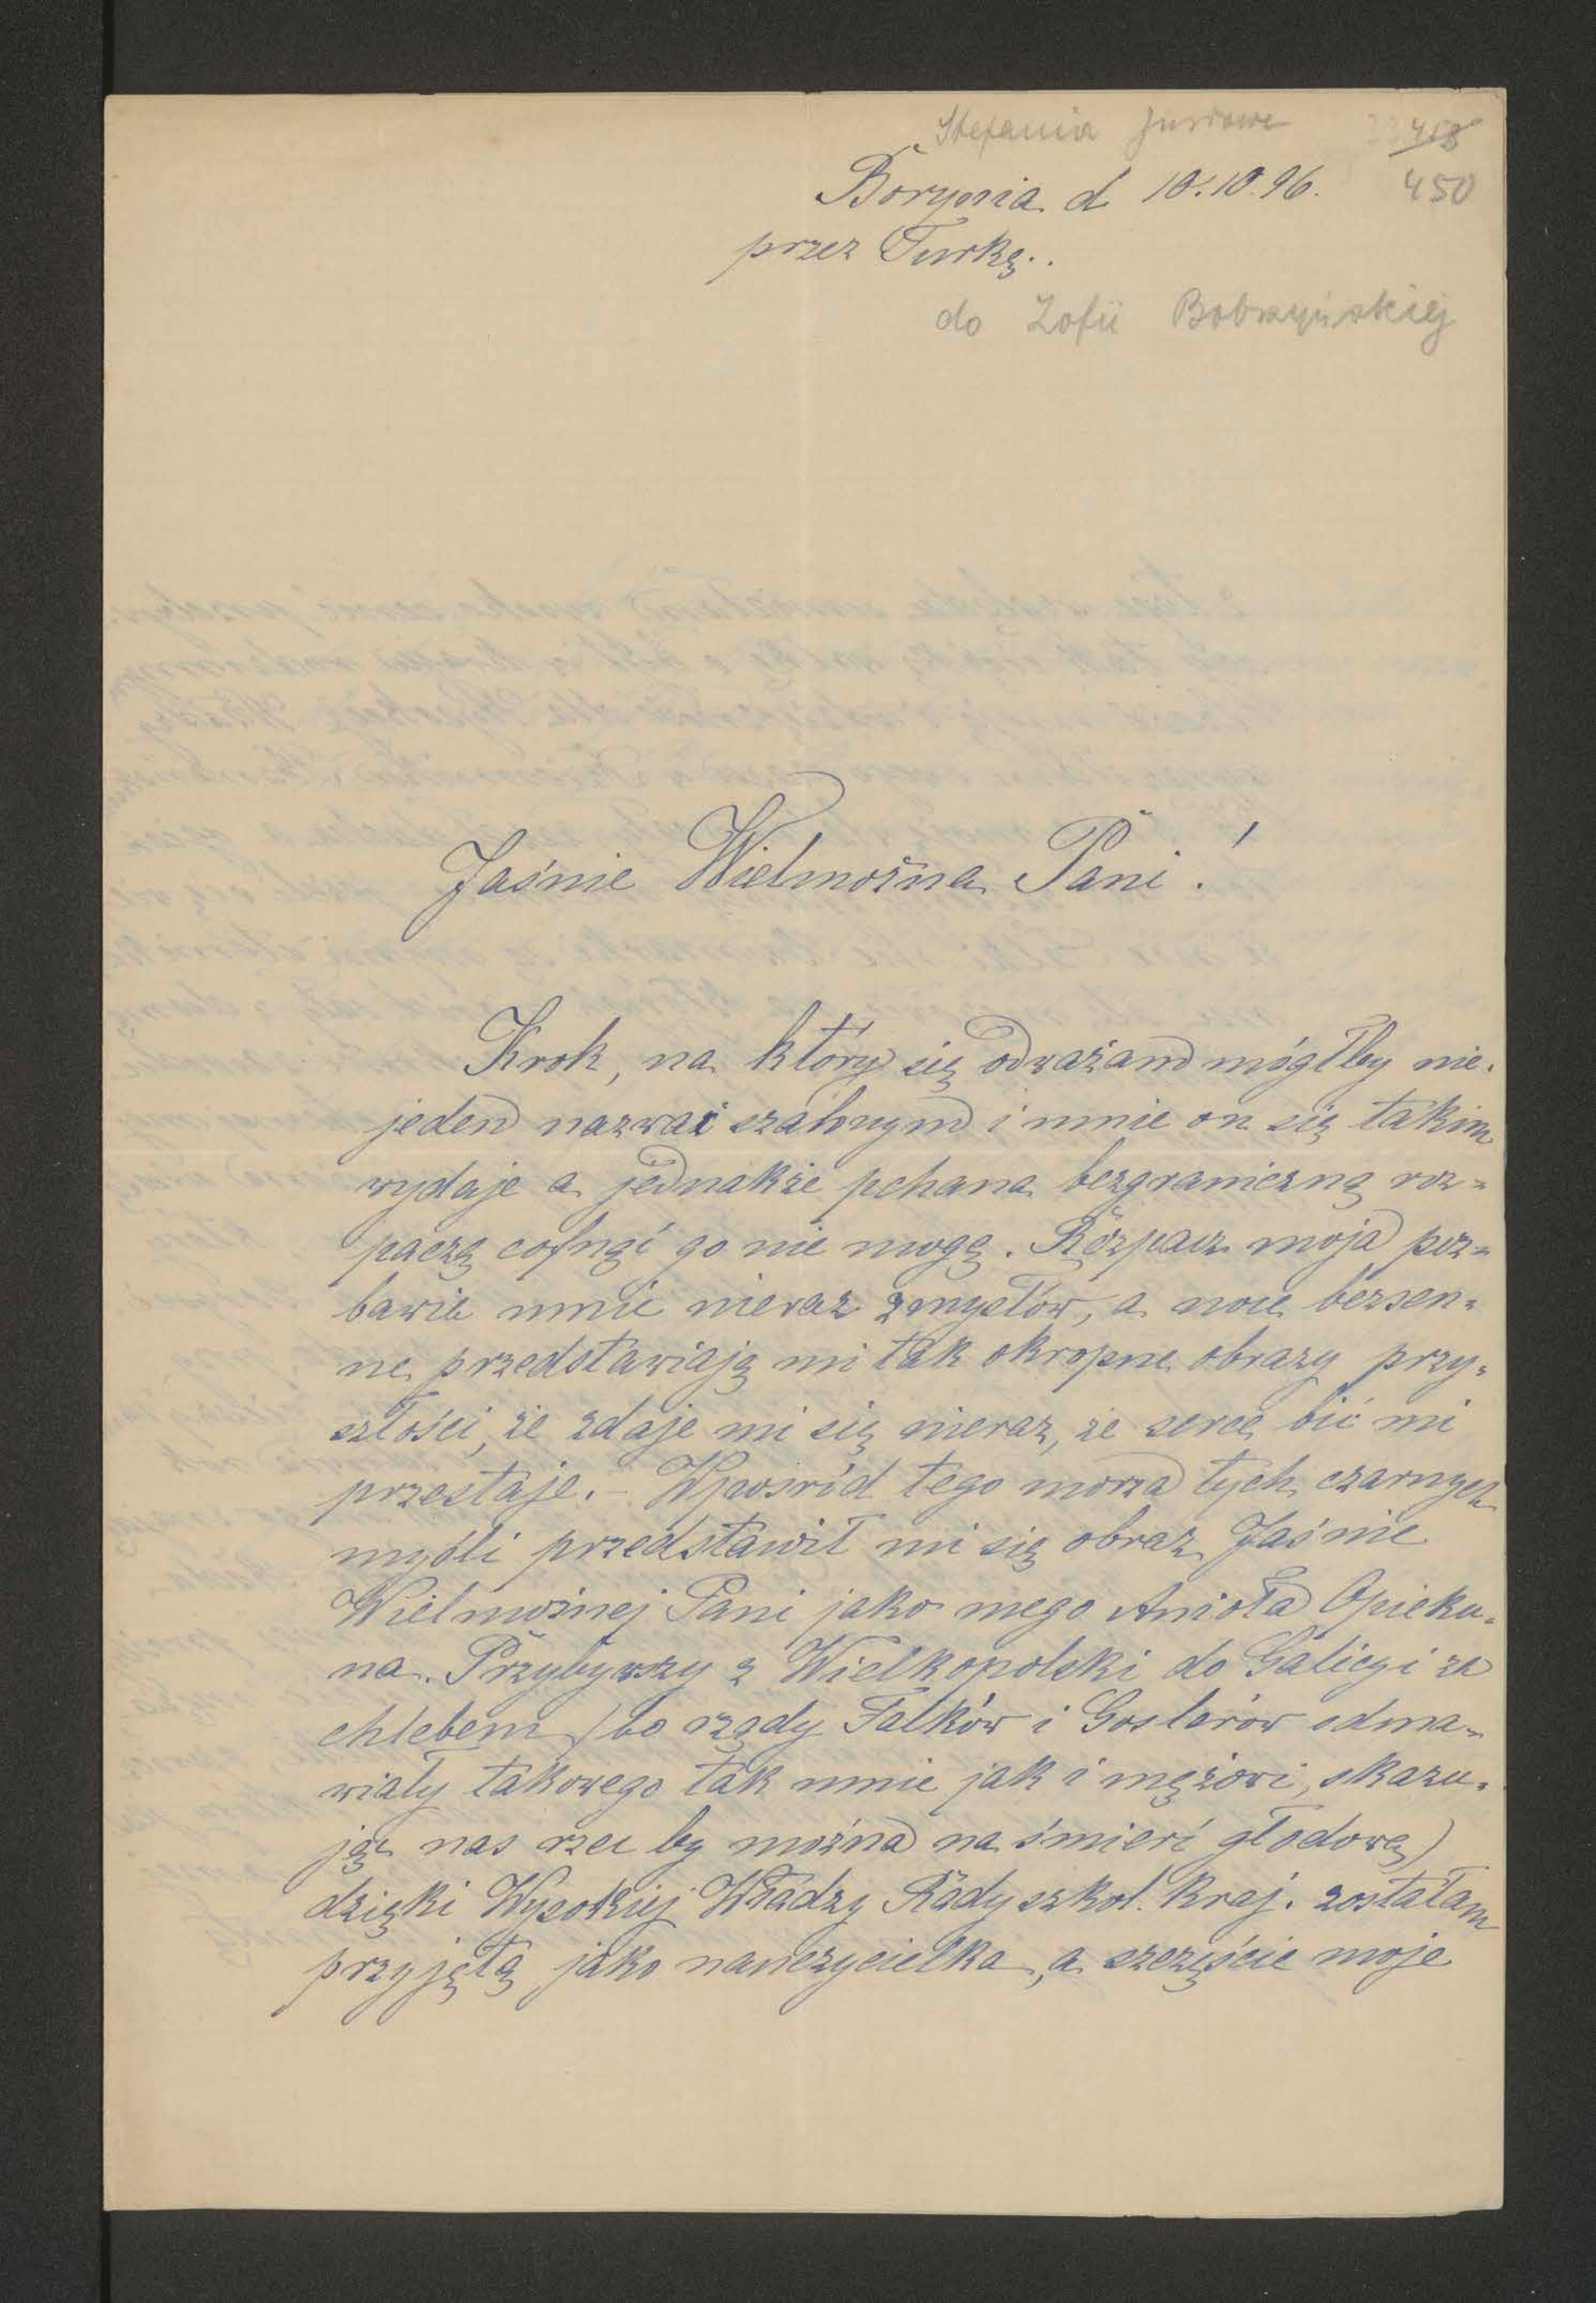 Stefania
418
Borynia d 10.10.96.
450
przez Turkę.
do Zofii Bobrzyńskiej
Jaśnie Wielmożna Pani!
Krok, na który się odważam mógłby nie-
jeden nazwać szalonym i mnie on się takim
wydaje a jednakże pchana bezgraniczną roz-
paczą cofnąć go nie mogę. Rozpacz moja poz-
bawia mnie nieraz zmysłów, a noce bezsen-
ne przedstawiają mi tak okropne obrazy przy-
szłości, że zdaje mi się nieraz, że serce bić mi
przestaje. – Wpośród tego morza tych czarnych
myśli przedstawił mi się obraz Jaśnie
Wielmożnej Pani jako mego Anioła Opieku-
na. Przybywszy z Wielkopolski do Galicyi za
chlebem (bo rządy Falków i Goslerów odma-
wiały takowego tak mnie jak i mężowi, skazu-
jąc nas rzec by można na śmierć głodową)
dzięki Wysokiej Władzy Rady szkol. Kraj. zostałam
przyjętą jako nauczycielka, a szczęście moje